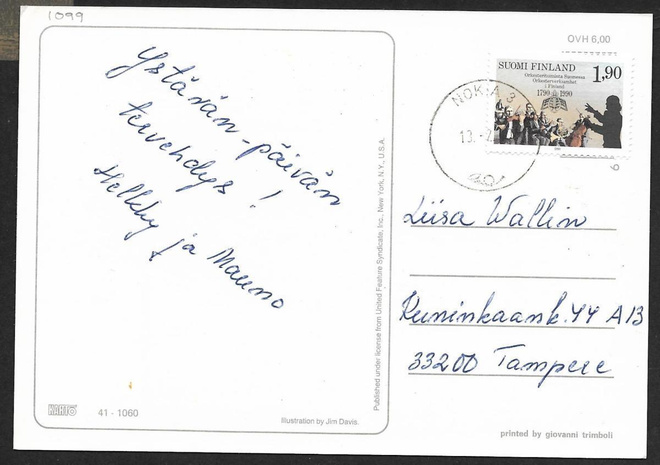 1099
OVH 6,00
SUOMI FINLAND
1,90
Orkesteritoiminta Suomessa
Orkesterverksamhet
i Finland
1790 1990
NOKIA 3
13.
Ystävän-päivän
tervehdys!
Hellky ja Mauno
Published under license from United Feature Syndicate, Inc., New York, N.Y., U.S.A.
Liisa Wallin
Kuninkaank. 44 A13
33200 Tampere
KARTO 41 - 1060
Illustration by Jim Davis.
printed by giovanni trimboli